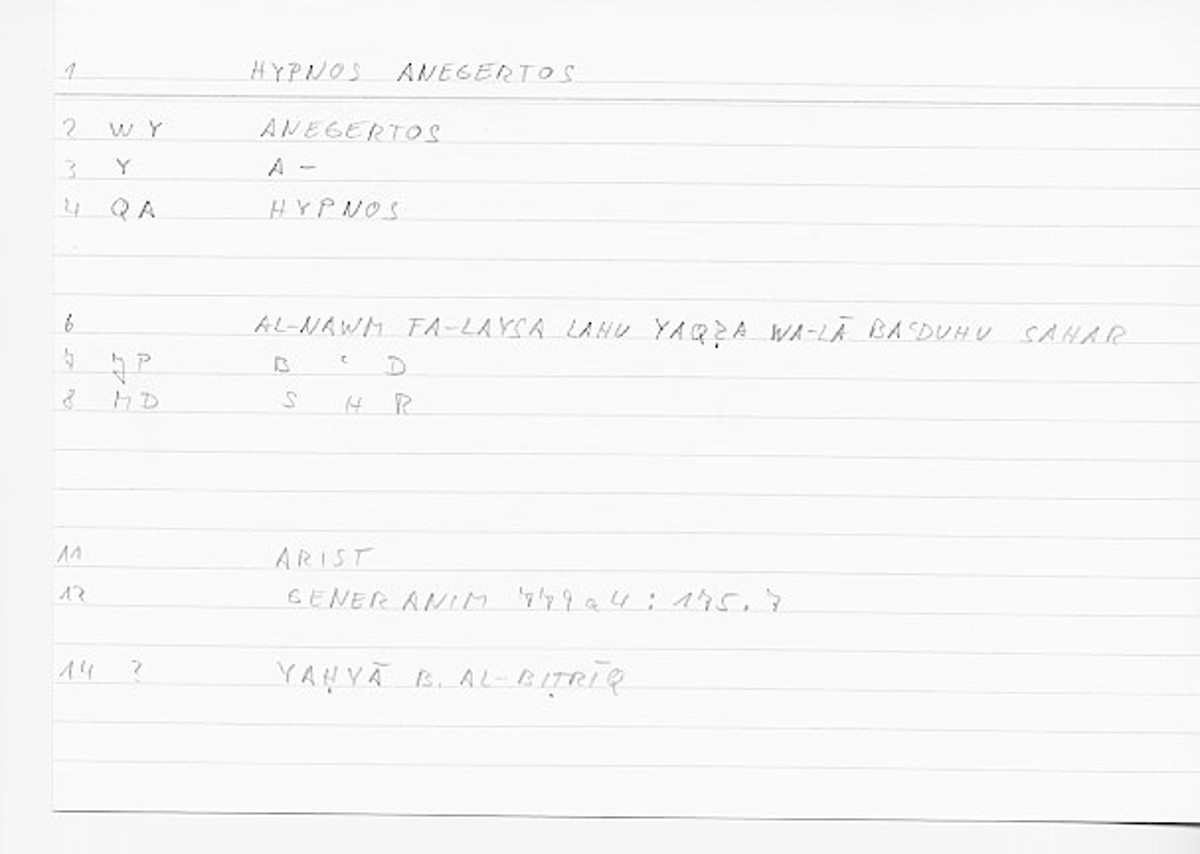 1 HYPNOS ANEGERTOS
2 WY ANEGERTOS
3 Y A –
4 QA HYPNOS
6 AL-NAWM FA-LAYSA LAHU YAQẒA WA-LĀ BAʿDUHU SAHAR
7 JP B ʿ D
8 MD S H R
11 ARIST
12 GENER ANIM 779a4 : 175.7
14 ? YAḤYĀ B. AL-BIṬRĪQ